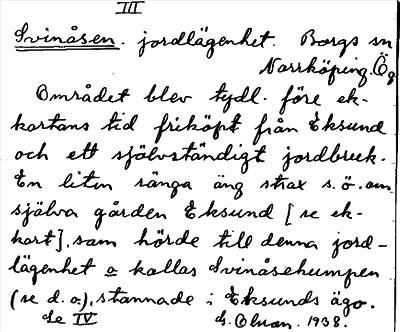 III
Svinåsen. jordlägenhet. Borgs sn
Norrköping. Ög
Området blev tydl. före ek-
kartans tid friköpt från Eksund
och ett självständigt jordbruk.
En liten sänga äng strax s.ö. om
själva gården Eksund [se ek-
kart], som hörde till denna jord-
lägenhet o kallas Svinåsehumpen
(se d.o.), stannade i Eksunds ägo.
Se IV G. 1938.